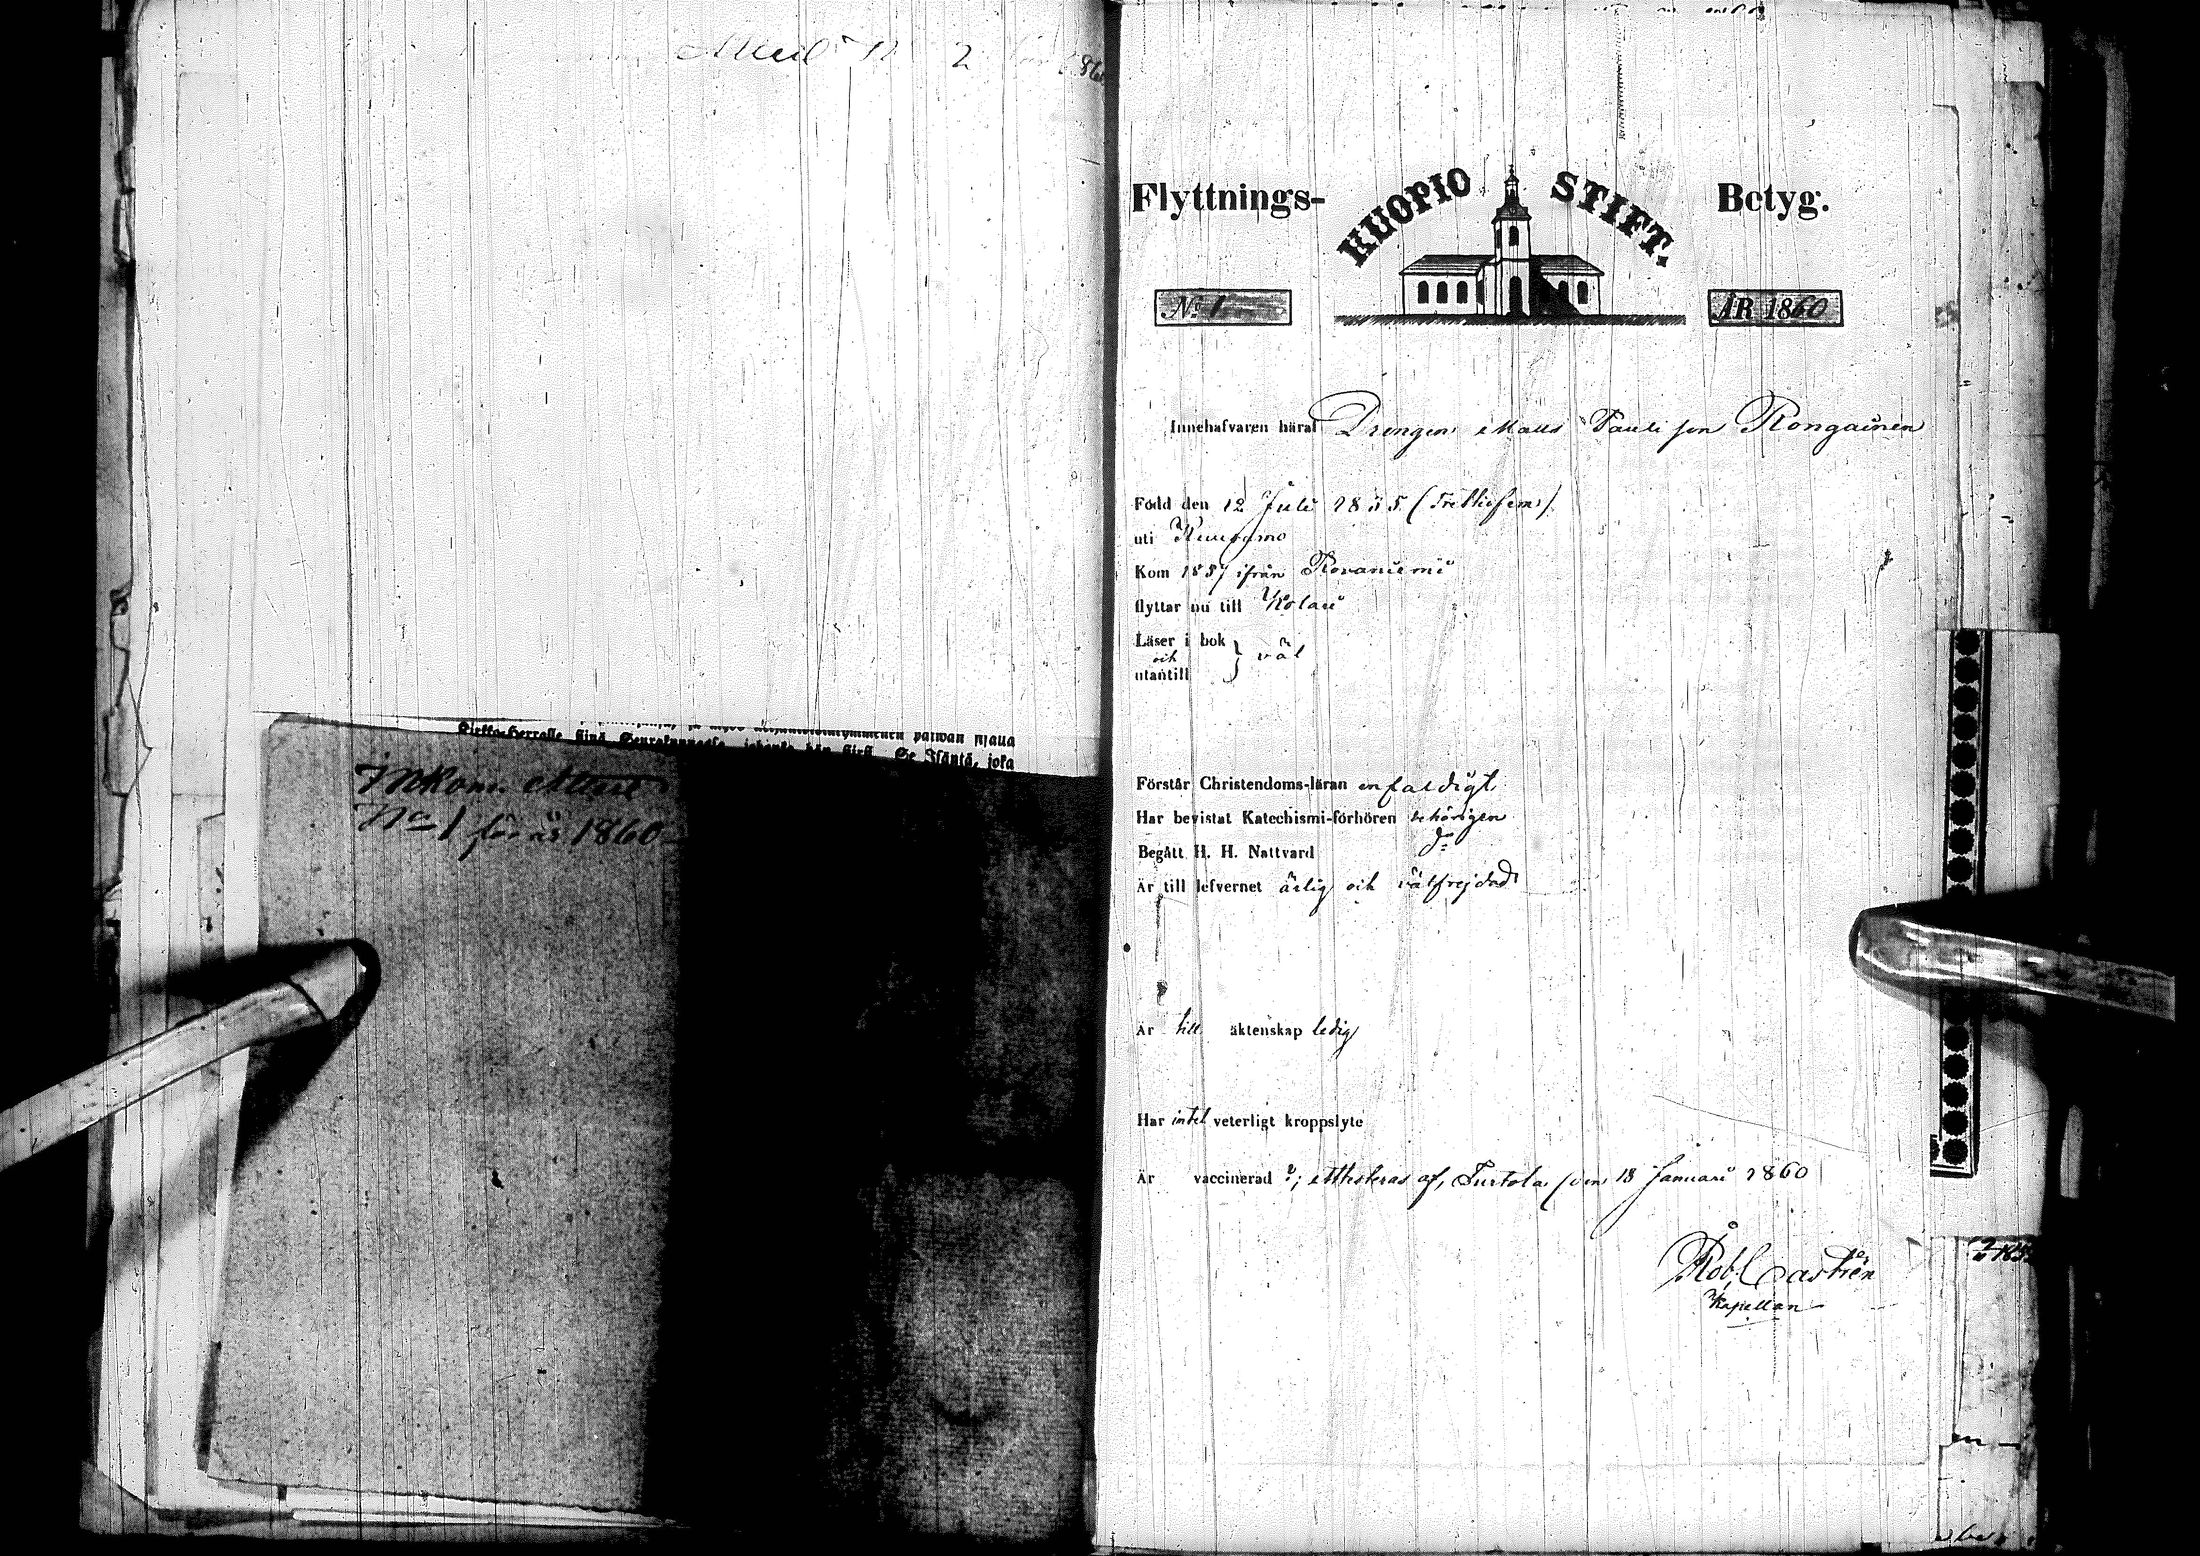 2
Kirkko-Herralle siinä Seurakunnassa, johonka hän siirt. Se Isäntä, joka
Inkom. Attest
No 1 för år 1860
Flyttnings-
KUOPIO STIFT.
Betyg.
No 1
ÅR 1860
Innehafvaren häraf Drengen Mats Pauli son Rongainen
Född den 12 Juli 1835 (Trettiofem)
uti Kuusamo
Kom 1857 ifrån Rovaniemi
flyttar nu till Kolari
Läser i bok
och } väl
utantill
Förstår Christendoms-läran enfaldigt
Har bevistat Katechismi-förhören behörigen
Begått H. H. Nattvard do
Är till lefvernet ärlig och välfrejdad
Är till äktenskap ledig
Har intet veterligt kroppslyte
Är vaccinerad ?; Attesteras af, Turtola den 18 Januari 1860
Rob. Castrén
Kapellan